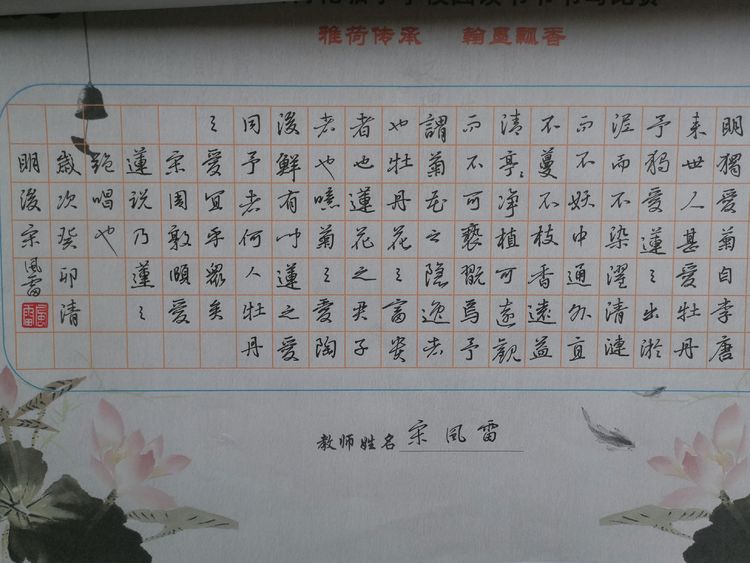 雅荷传承 翰墨飘香
明獨愛菊自李唐
来世人甚愛牡丹
予獨愛蓮之出淤
泥而不染濯清漣
而不妖中通外直
不蔓不枝香遠益
清亭〻净植可遠觀
而不可褻翫焉予
謂菊花之隐逸者
也牡丹花之富贵
者也蓮花之君子
者也噫菊之愛陶
後鮮有闻蓮之愛
同予者何人牡丹
之愛宜乎眾矣
宋周敦頤愛
蓮说乃蓮之
绝唱也
歲次癸卯清
明後宋風雷
風雷
教师姓名 宋風雷